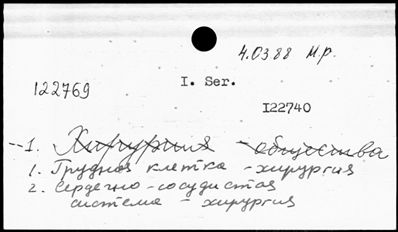 4.0388 М.р.
I. Ser.
122769
I22740
--1. Хирургия - общества
1. Грудная клетка - хирургия
2. Сердечно-сосудистая
система - хирургия